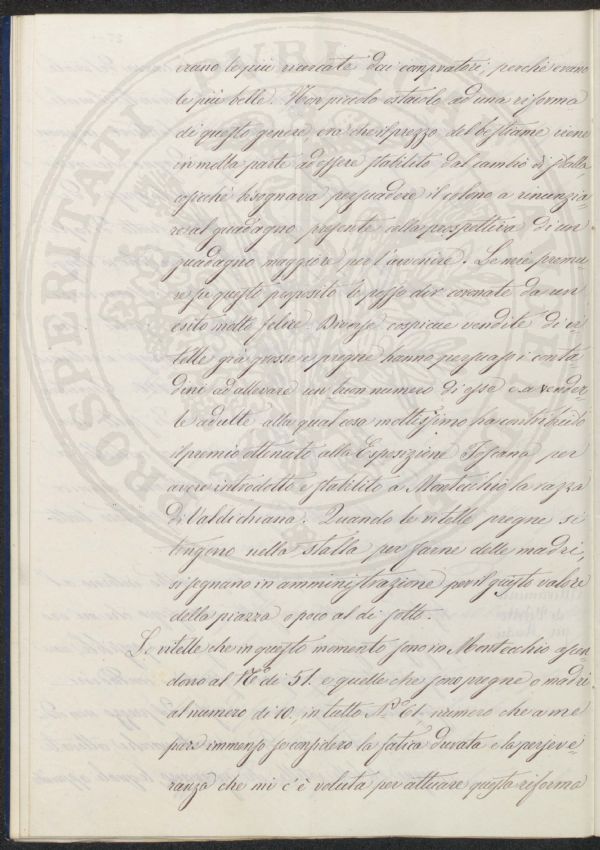 erano le più ricercate dai compratori, perchè erano
le più belle. Non piccolo ostacolo ad una riforma
di questo genere era che il prezzo del bestiame viene
in molta parte ad essere stabilito dal cambio di stalla
cosichè bisognava persuadere il colono a rinunzia-
re al guadagno presente colla prospettiva di un
guadagno maggiore per l'avvenire. Le mie premu-
re su questo proposito le posso dir coronate da un
esito molto felice. Diverse cospicue vendite di vi-
telle già grosse e pregne hanno persuaso i conta-
dini ad allevare un buon numero di esse e a vender-
le adulte alla qual cosa moltissimo ha contribuito
il premio ottenuto alla Esposizione Toscana per
avere introdotto e stabilito a Montecchio la razza
di Valdichiana. Quando le vitelle pregne si
tengono nella stalla per farne delle madri,
si segnano in amministrazione per il giusto valore
della piazza o poco al di sotto.
Le vitelle che in questo momento sono in Montecchio ascen-
dono al N.º di 51. e quelle che sono pregne o madri
al numero di 10. in tutto N.º 61, numero che a me
pare immenso se considero la fatica durata e la perseve-
ranza che mi c'è voluta per attivare questa riforma
PROSPERITATI